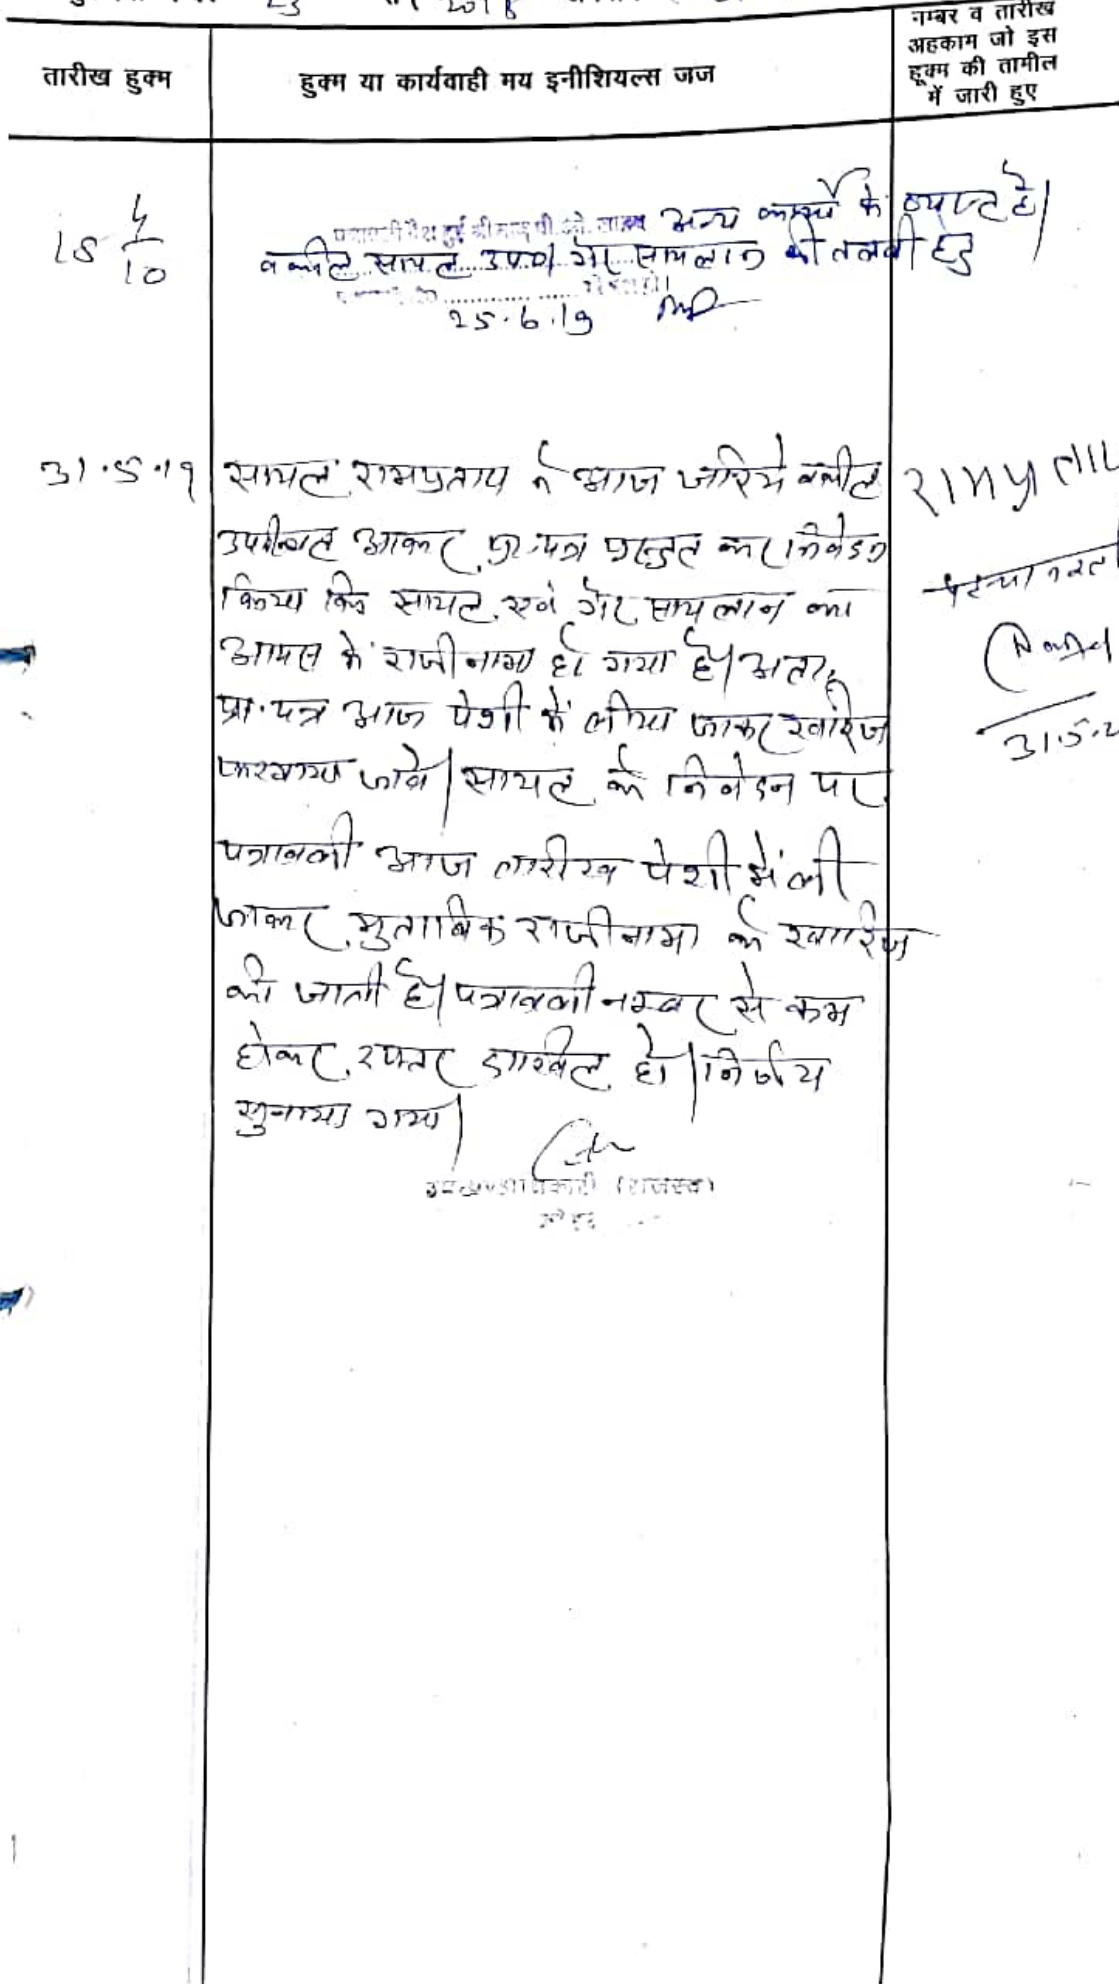 23 2018
तारीख हुक्म
हुक्म या कार्यवाही मय इनीशियल्स जज
नम्बर व तारीख
अहकाम जो इस
हूक्म की तामील
में जारी हुए
18 4/10
अन्य कार्यो में व्यस्त है।
वकील सायल उप0। गैर सायलान की तलबी हेतु
25.6.19
31.5.19
सायल रामप्रताप ने आज जरिये वकील
उपस्थित आकर प्रा.पत्र प्रस्तुत कर निवेदन
किया कि सायल एवं गैर सायलान का
आपस में राजीनामा हो गया है। अतः
प्रा.पत्र आज पेशी में लीया जाकर खारिज
फरमाया जावे। सायल के निवेदन पर
पत्रावली आज तारीख पेशी में ली
जाकर मुताबिक राजीनामा के खारिज
की जाती है। पत्रावली नम्बर से कम
होकर दफ्तर दाखिल हो। निर्णय
सुनाया गया।
रामप्रताप
31.5.2
उपखण्ड अधिकारी (राजस्व)